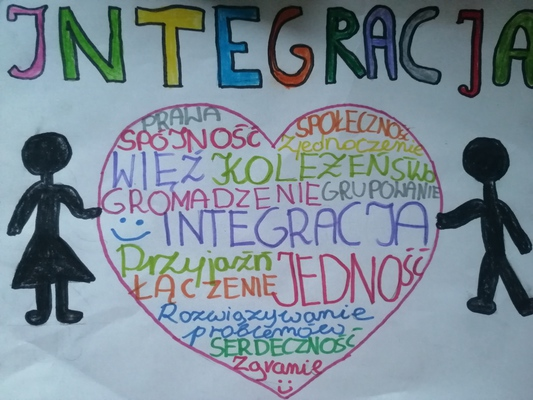 INTEGRACJA
PRAWA
SPÓJNOŚĆ
SPOŁECZNOŚĆ
Zjednoczenie
WIĘŹ KOLEŻEŃSTWO
GROMADZENIE GRUPOWANIE
INTEGRACJA
Przyjaźń JEDNOŚĆ
ŁĄCZENIE
Rozwiązywanie
problemów
SERDECZNOŚĆ
Zgranie